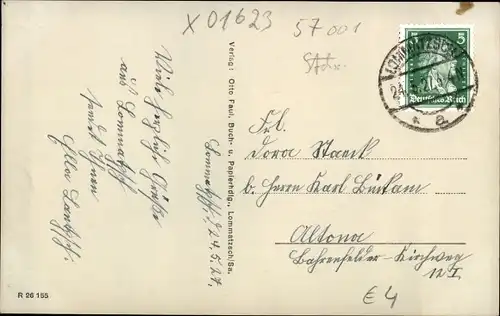 X 01623
57 001
Viele herzliche Grüße
aus Lommatzsch
sendet Ihnen
Ella
Lommatzsch, d. 24.5.27.
Verlag: Otto Faul, Buch- u. Papierhdlg., Lommatzsch/Sa.
5 5
Deutsches Reich
LOMMATZSCH
24.5.27
* a
Frl.
Dora Staeck
b. Herrn Karl
Altona
Bahrenfelder-Kirchweg
R 26 155
€ 4